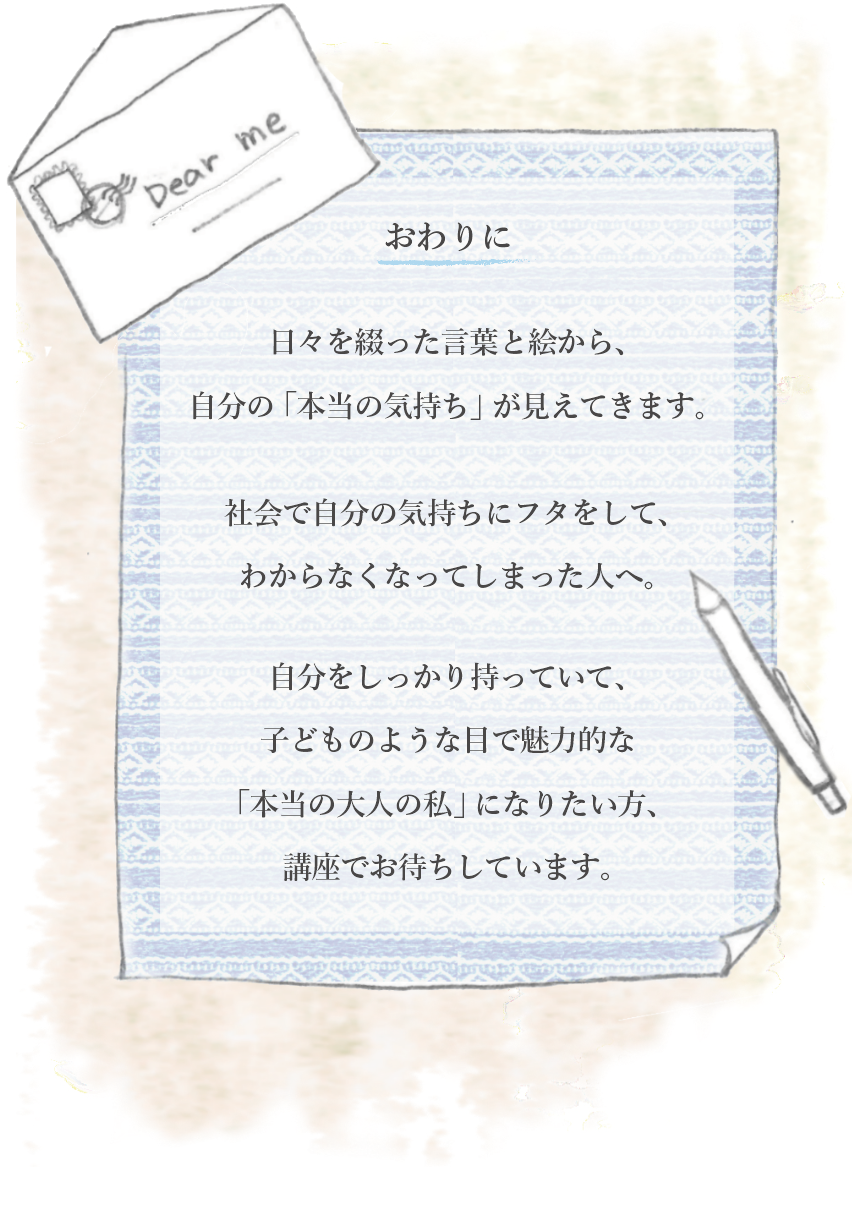 Dear me
おわりに
日々を綴った言葉と絵から、
自分の「本当の気持ち」が見えてきます。
社会で自分の気持ちにフタをして、
わからなくなってしまった人へ。
自分をしっかり持っていて、
子どものような目で魅力的な
「本当の大人の私」になりたい方、
講座でお待ちしています。